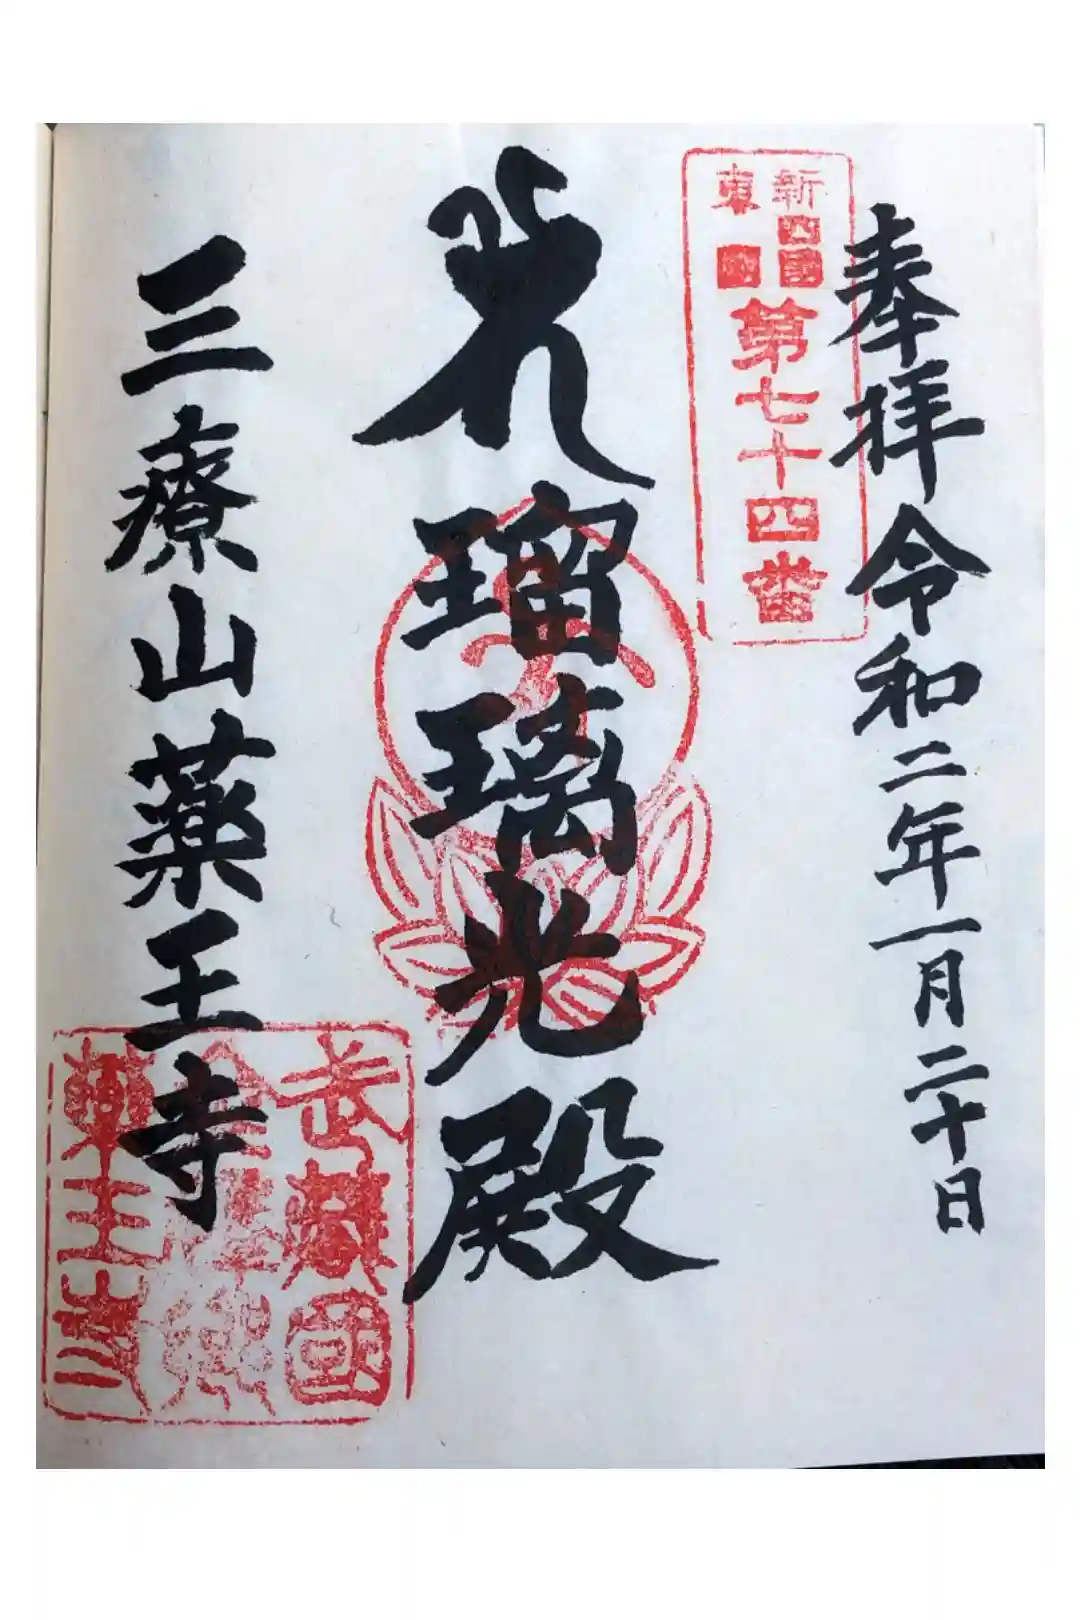 奉拝 令和二年一月二十日
新四国
東国
第七十四番
瑠璃光殿
三療山薬王寺
武蔵国
薬王寺